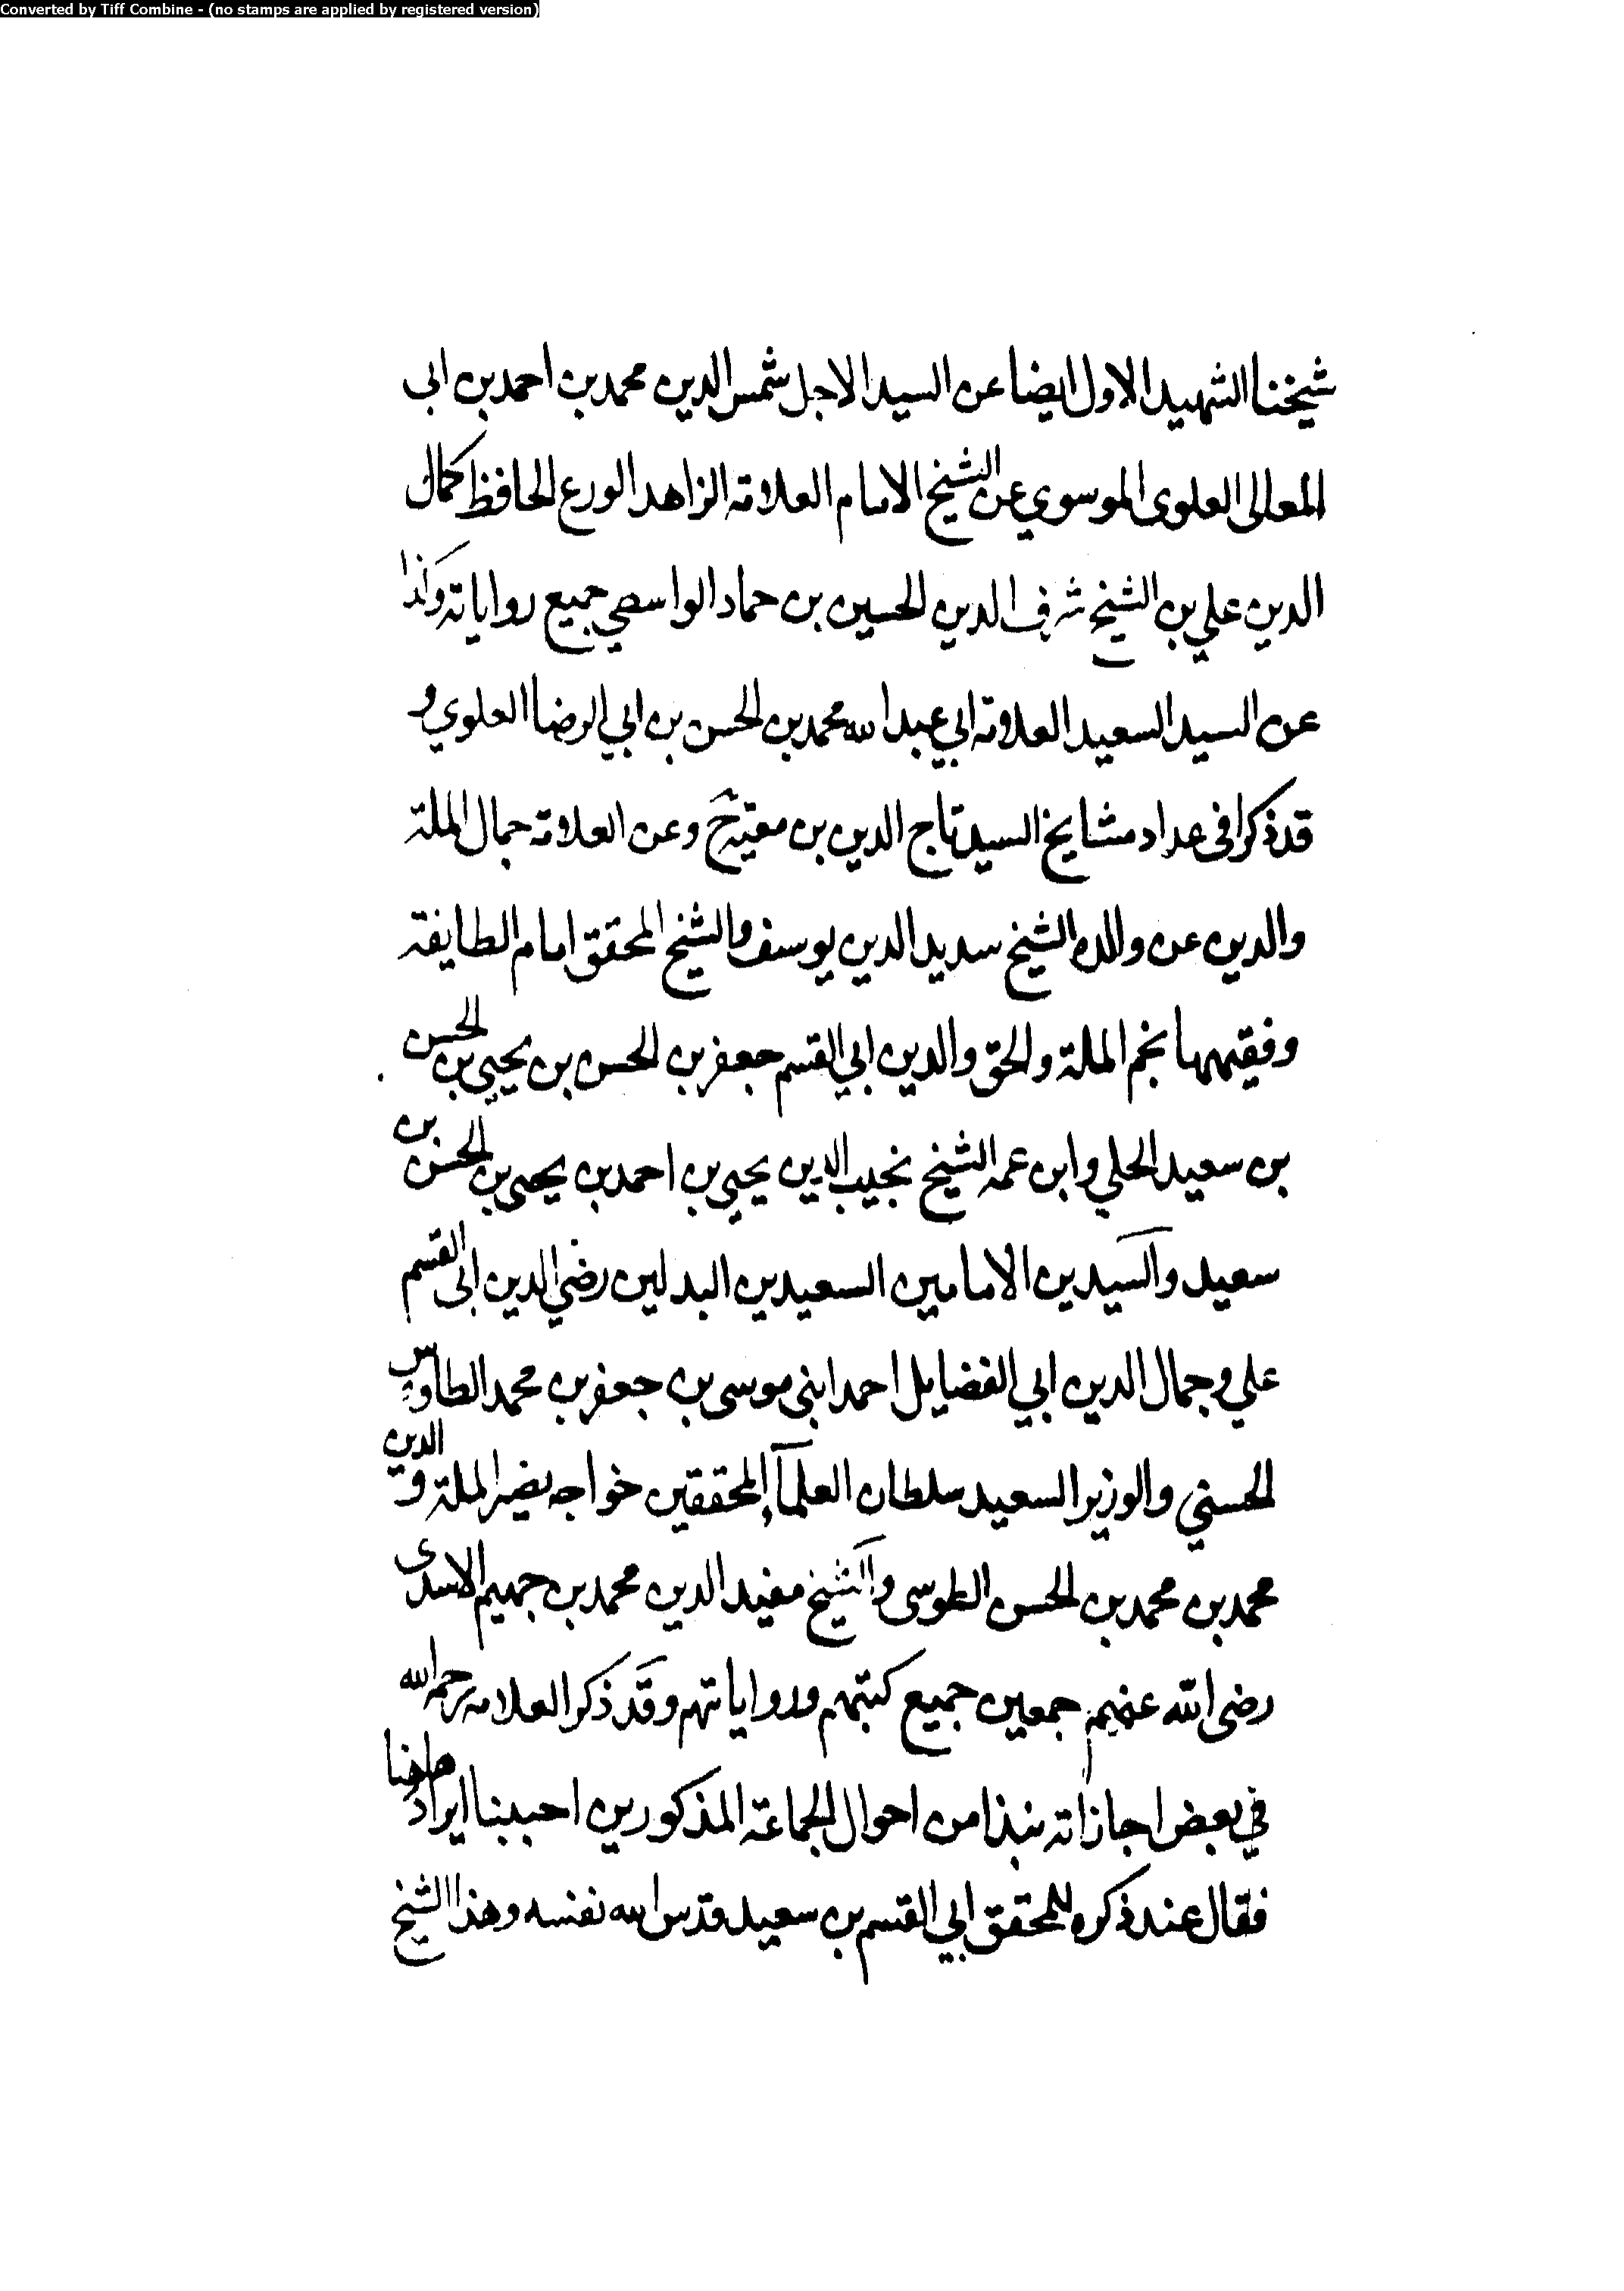 Converted by Tiff Combine - (no stamps are applied by registered version)
شيخنا الشهيد الاول ايضا عن السيد الاجل شمس الدين محمد بن احمد بن ابى
المعالى العلوى الموسوي عن الشيخ الامام العلامة الزاهد الورع الحافظ كمال
الدين علي بن الشيخ شرف الدين الحسين بن حماد الواسطي جميع رواياته وكذا
عن السيد السعيد العلامة ابي عبد الله محمد بن الحسن بن ابي الرضا العلوي و
قد ذكرا فى عداد مشايخ السيد تاج الدين بن معية ح وعن العلامة جمال الملة
والدين عن والده الشيخ سديد الدين يوسف والشيخ المحقق امام الطايفة
وفقيهها نجم الملة والحق والدين ابي القسم جعفر بن الحسن بن يحيي بن الحسن
بن سعيد الحلي وابن عمه الشيخ نجيب الدين يحيي بن احمد بن يحيى بن الحسن بن
سعيد والسيدين الامامين السعيدين البدلين رضي الدين ابى القسم
علي وجمال الدين ابي الفضايل احمد ابنى موسى بن جعفر بن محمد الطاوس
الحسني والوزير السعيد سلطان العلمآء المحققين خواجه نصير الملة والدين
محمد بن محمد بن الحسن الطوسى والشيخ مفيد الدين محمد بن جهيم الاسدى
رضى الله عنهم جمعين جميع كتبهم ورواياتهم وقد ذكر العلامه رحمه الله
في بعض اجازاته نبذا من احوال الجماعة المذكورين احببنا ايراد هاهنا
فقال عند ذكره للمحقق ابي القسم بن سعيد قدس الله نفسه وهذا الشيخ